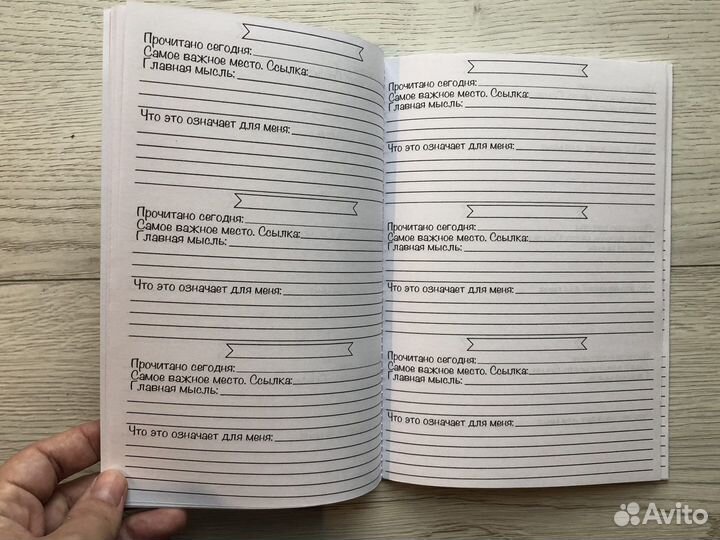 Прочитано сегодня:
Самое важное место. Ссылка:
Главная мысль:
Что это означает для меня:
Прочитано сегодня:
Самое важное место. Ссылка:
Главная мысль:
Что это означает для меня:
Прочитано сегодня:
Самое важное место. Ссылка:
Главная мысль:
Что это означает для меня:
Прочитано сегодня:
Самое важное место. Ссылка:
Главная мысль:
Что это означает для меня:
Прочитано сегодня:
Самое важное место. Ссылка:
Главная мысль:
Что это означает для меня:
Прочитано сегодня:
Самое важное место. Ссылка:
Главная мысль:
Что это означает для меня:
Avito